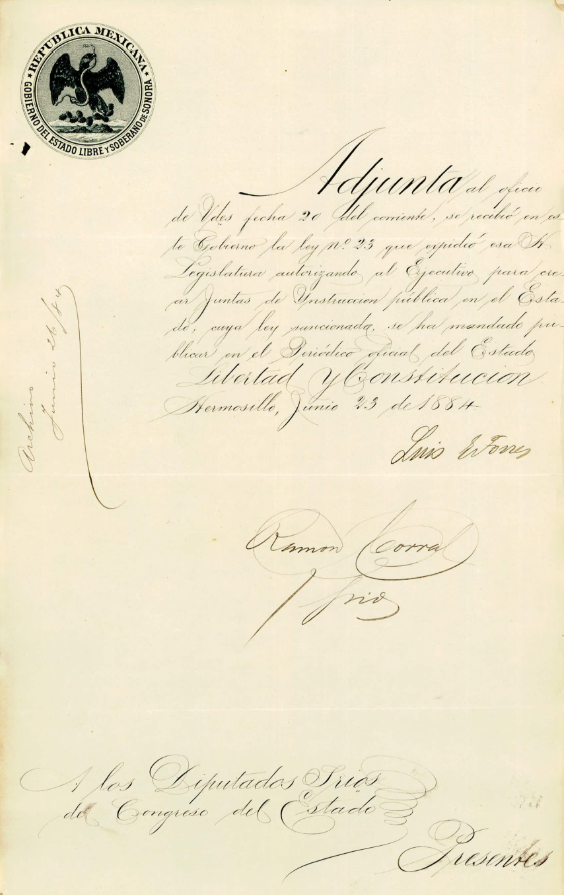 REPUBLICA MEXICANA
GOBIERNO DEL ESTADO LIBRE Y SOBERANO DE SONORA
Adjunta al oficio
de Vdes fecha 20 del corriente, se recibió en es-
te Gobierno la ley nº 23 que expidió esa H.
Legislatura autorizando al Ejecutivo para cre-
ar Juntas de Ynstruccion pública en el Esta-
do, cuya ley sancionada, se ha mandado pu-
blicar en el Periódico oficial del Estado
Libertad y Constitucion
Hermosillo, Junio 23 de 1884
Luis E Torres
Ramon Corral
Srio
Archivo
Junio 26/84
A los Diputados Srios
del Congreso del Estado
Presentes